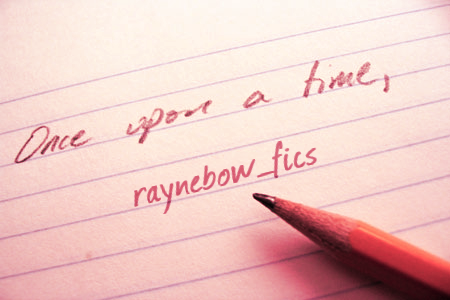 Once upon a time,
raynebow_fics